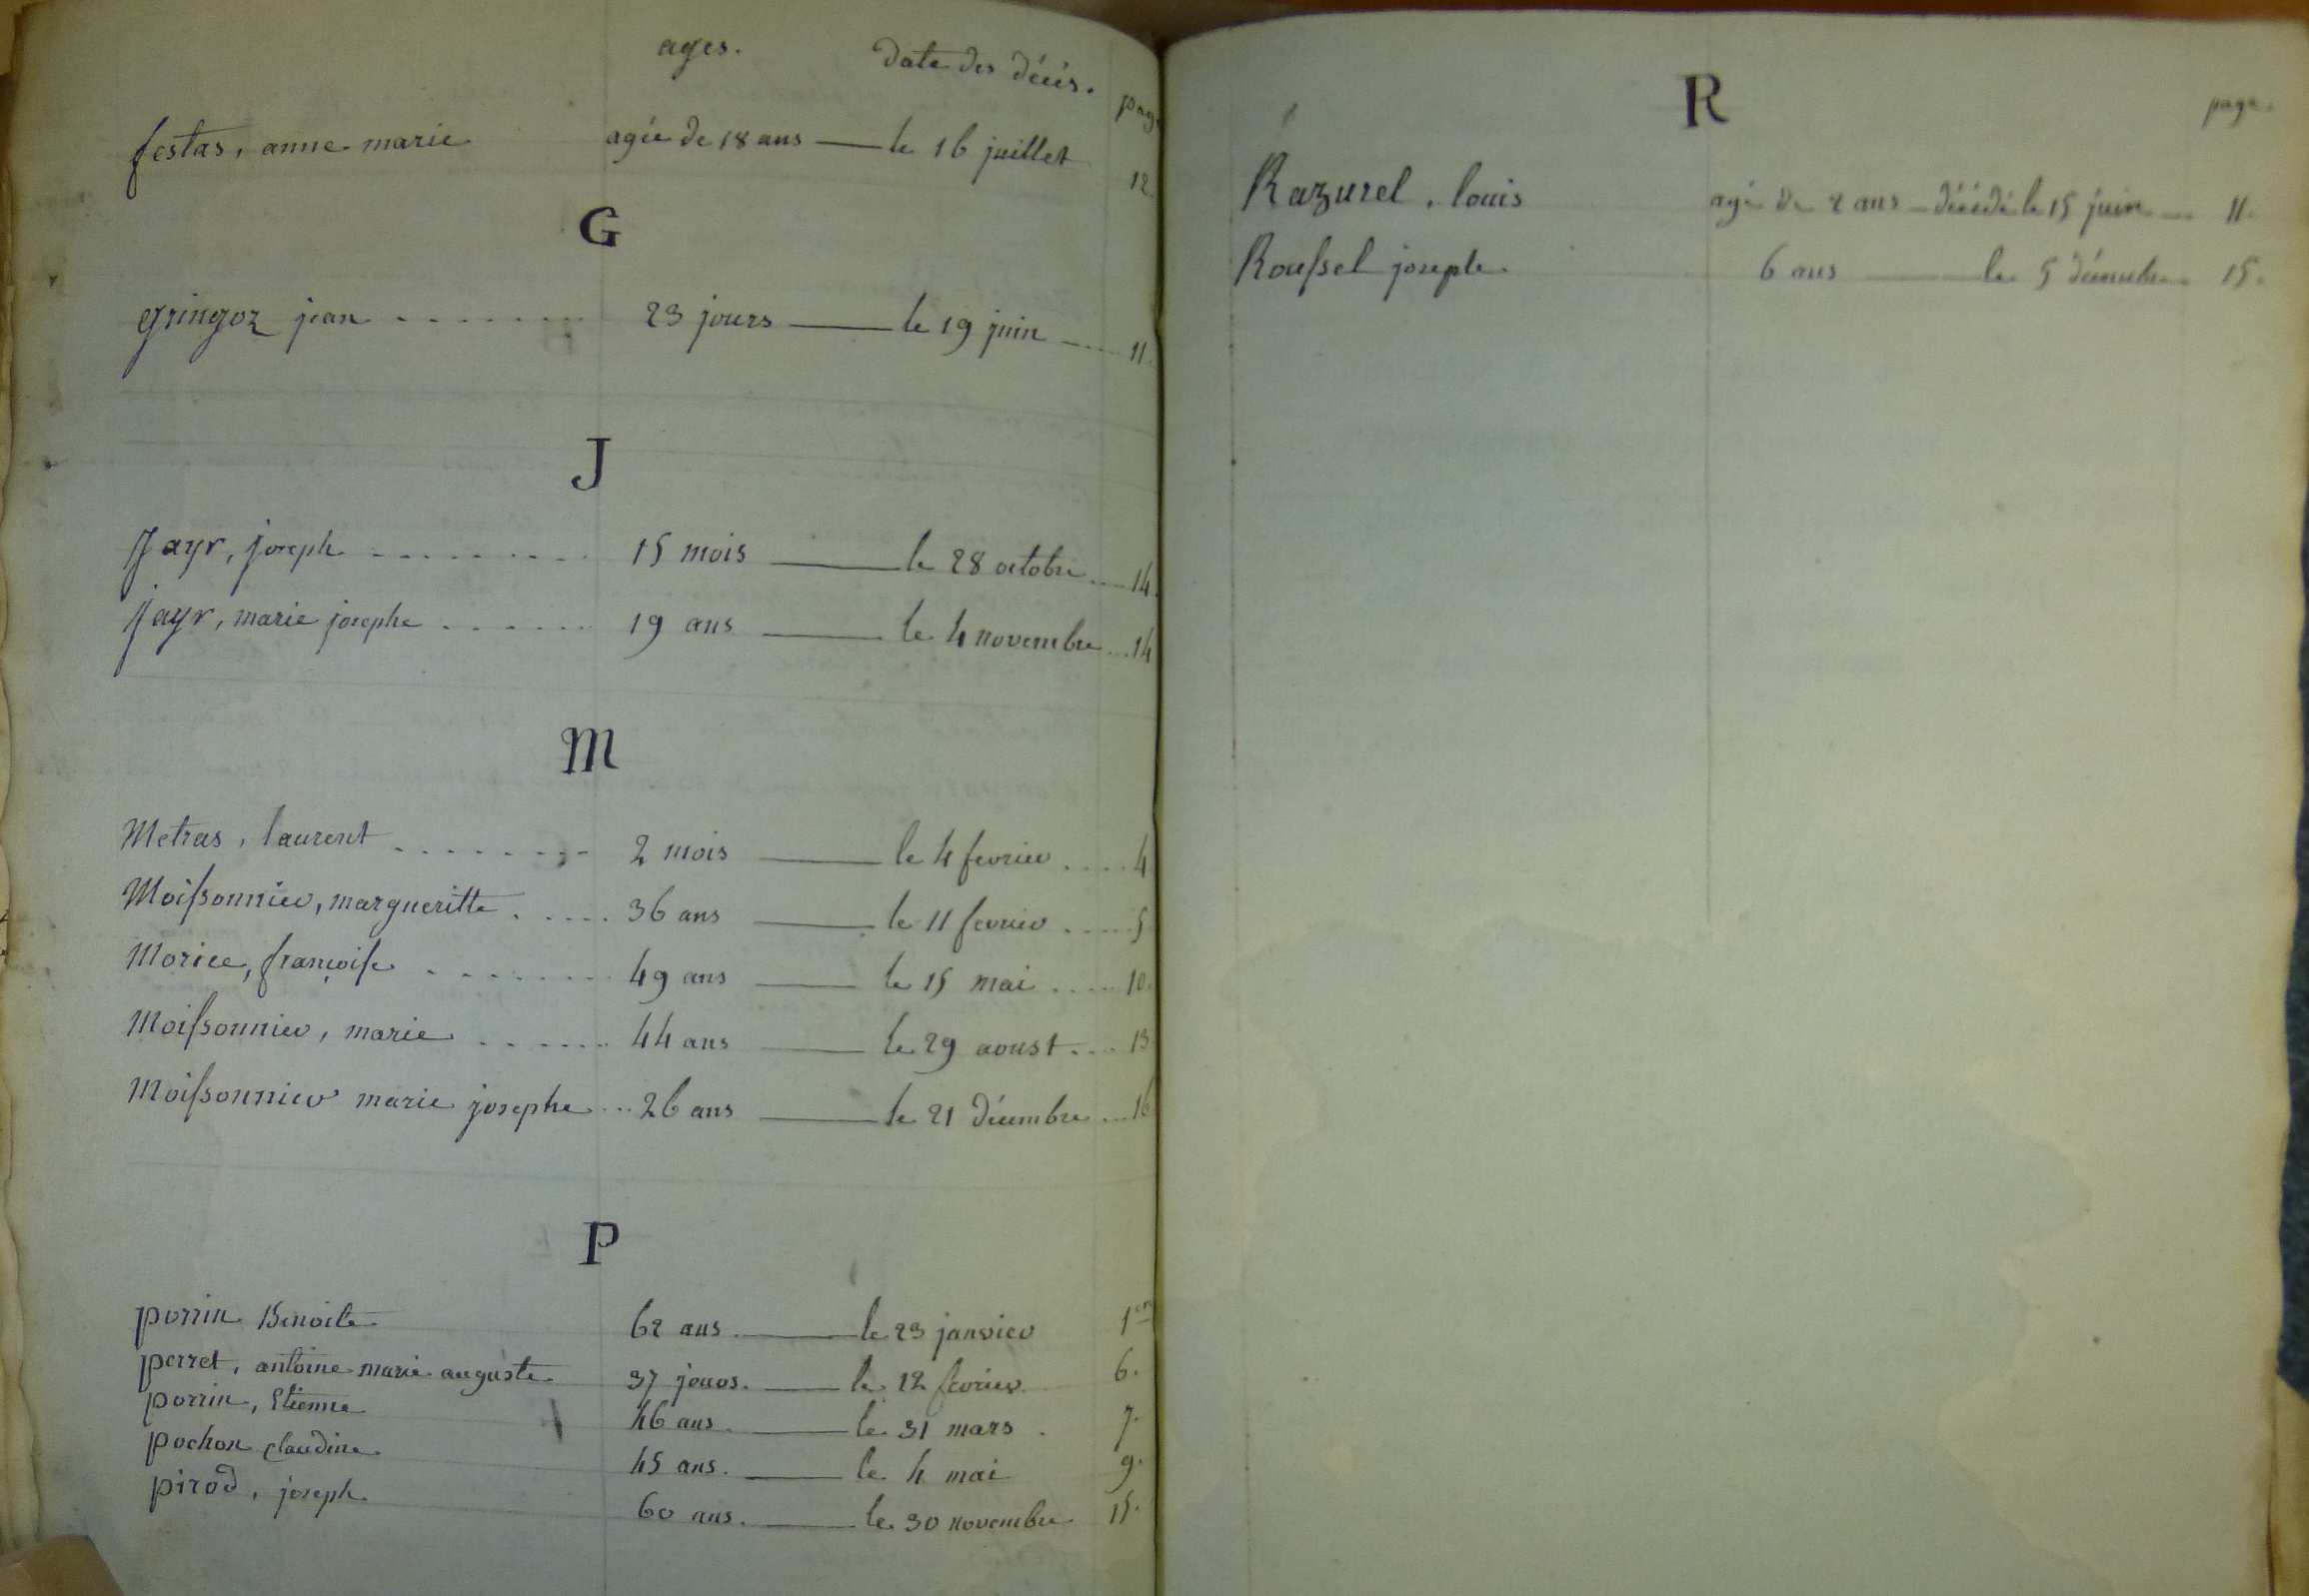 ages. Date des décés. page
festas, anne marie agée de 18 ans — le 16 juillet 12
G
gringoz jean 23 jours — le 19 juin 11.
J
Jayr, joseph 15 mois — le 28 octobre 14.
jayr, marie josephe 19 ans — le 4 novembre 14
M
Metras, laurent 2 mois — le 4 fevrier 4
Moissonnier, margueritte 36 ans — le 11 fevrier 5
Morice, françoise 49 ans — le 15 mai 10.
Moissonnier, marie 44 ans — le 29 aoust 13
Moissonnier marie josephe 26 ans — le 21 Décembre 16
P
perrin Benoite 62 ans. — le 23 janvier 1er
perret, antoine marie auguste 37 jours. — le 12 fevrier 6.
perrin, Etienne 46 ans. — le 31 mars. 7.
pochon claudine 45 ans. — le 4 mai 9.
pirod, joseph 60 ans. — le 30 novembre 15.
R
page.
Razurel, louis agé de 2 ans — décédé le 15 juin 11.
Roussel joseph 6 ans — le 5 décembre 15.